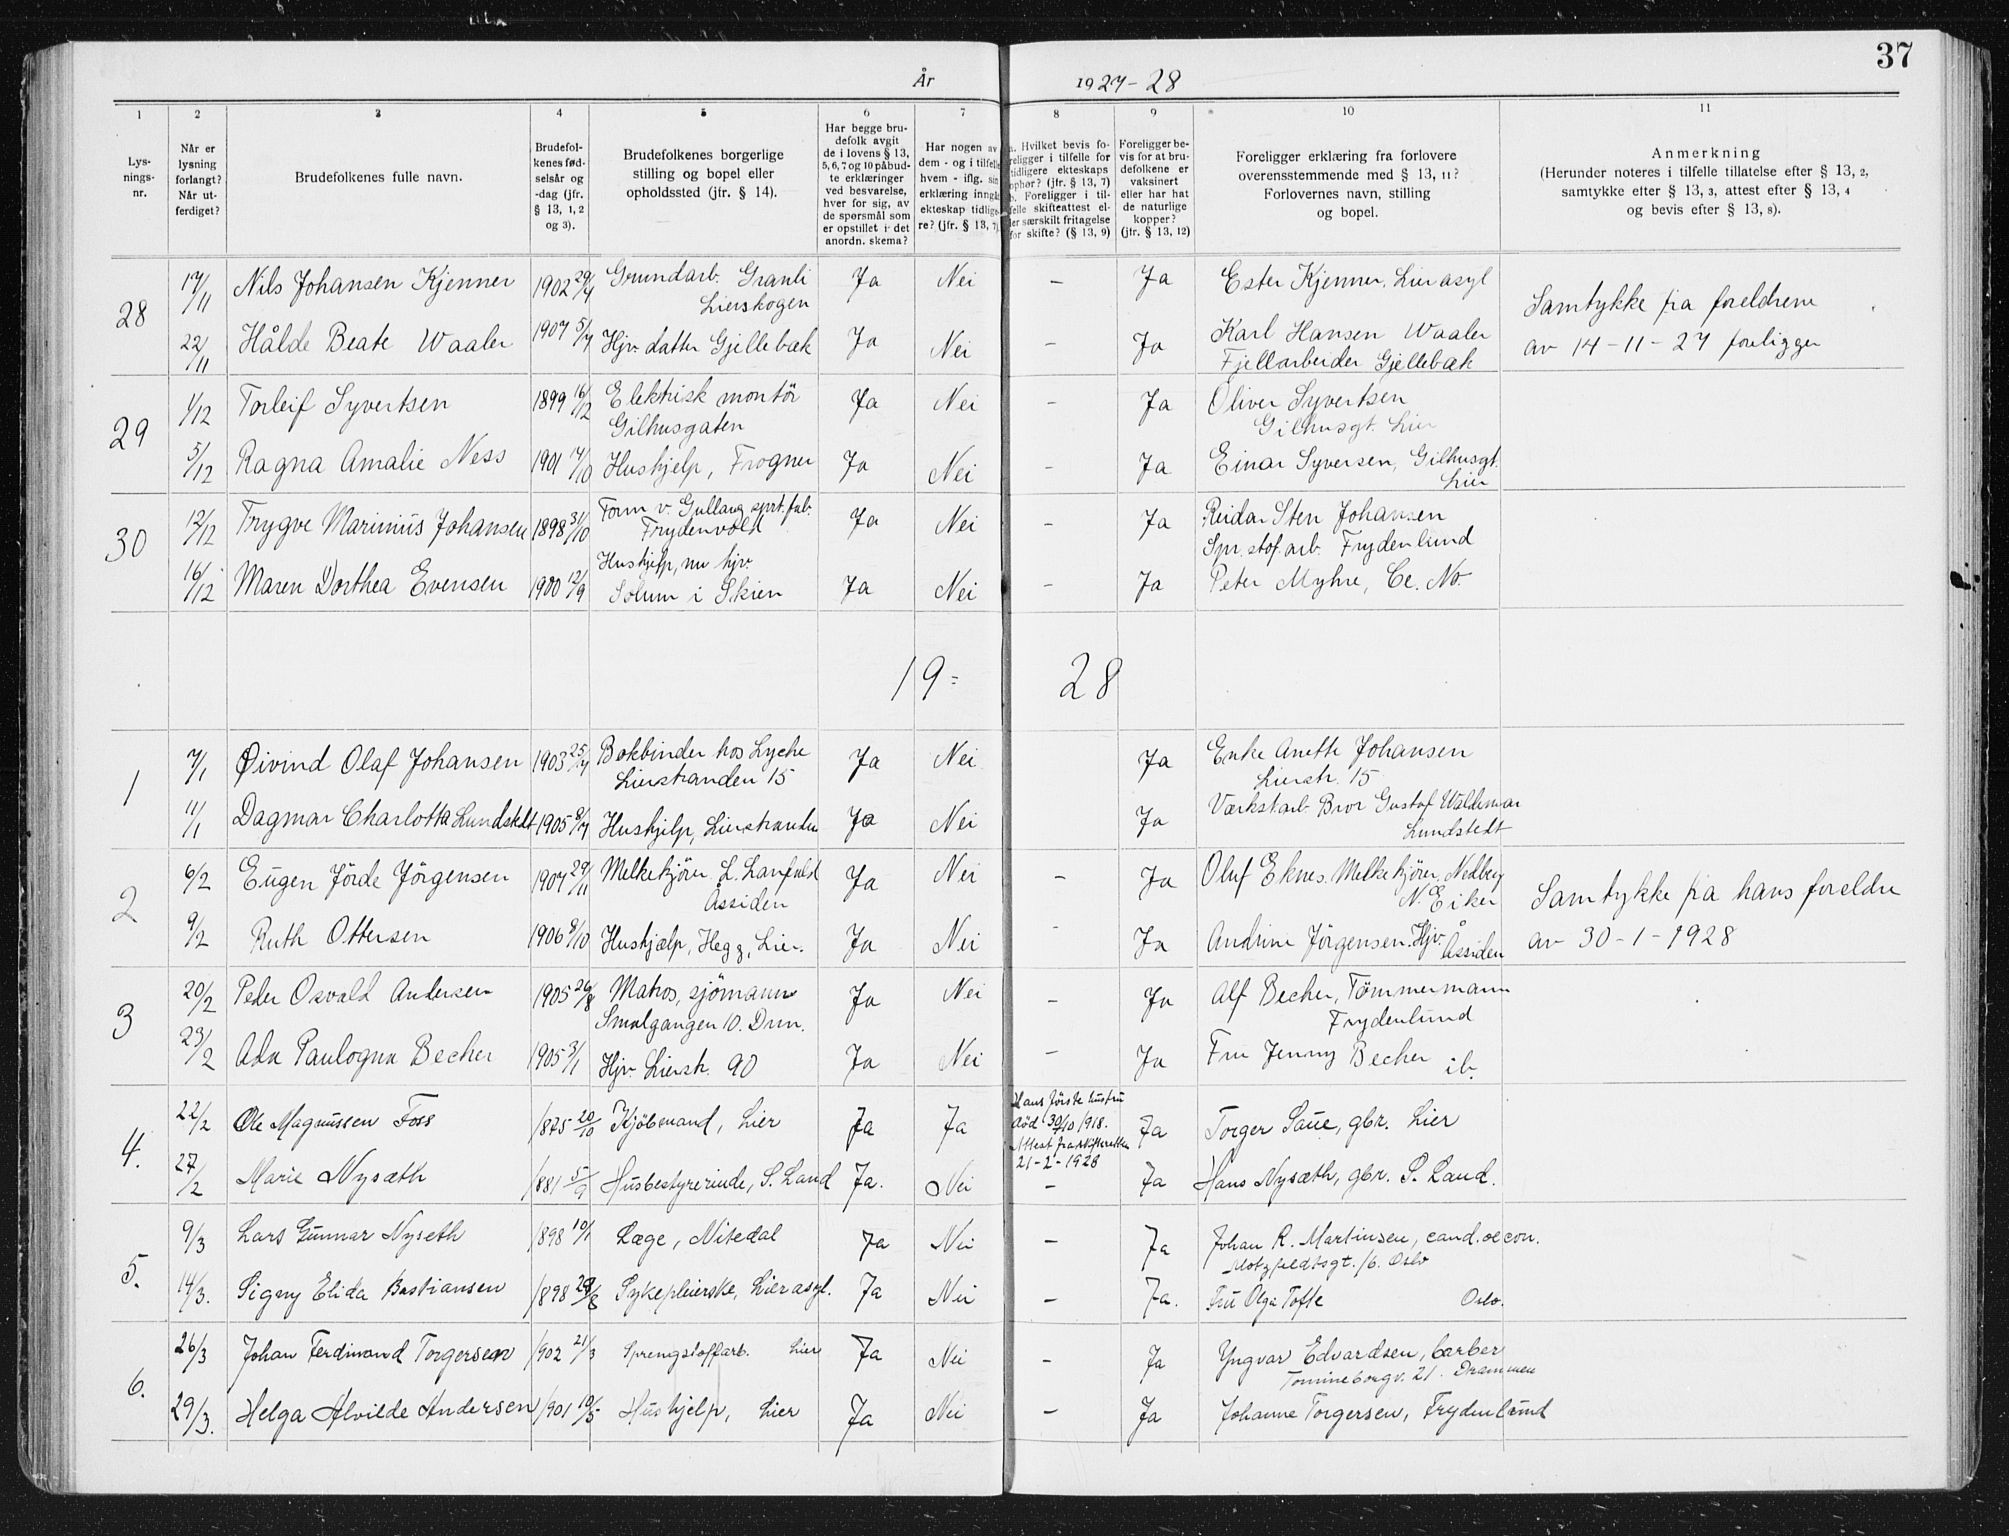 37
År 1927-28
1 2 3 4 5 6 7 8 9 10 11
Lys-
nings-
nr.
Når er
lysning
forlangt?
Når ut-
ferdiget?
Brudefolkenes fulle navn.
Brudefol-
kenes fød-
selsår og
-dag (jfr.
§ 13, 1, 2
og 3).
Brudefolkenes borgerlige
stilling og bopel eller
opholdssted (jfr. § 14).
Har begge bru-
defolk avgit
de i lovens § 13,
5, 6, 7 og 10 påbud-
te erklæringer
ved besvarelse,
hver for sig, av
de spørsmål som
er opstillet i det
anordn. skema?
Har nogen av
dem - og i tilfelle
hvem - iflg. sin
erklæring inngå
ekteskap tidlige-
re? (jfr. § 13, 7)
a. Hvilket bevis fo-
religger i tilfelle for
tidligere ekteskaps
ophør? (jfr. § 13, 7)
b. Foreligger i til-
felle skifteattest el-
ler særskilt fritagelse
for skifte? (§ 13, 9)
Foreligger be-
vis for at bru-
defolkene er
vaksinert
eller har hat
de naturlige
kopper?
(jfr. § 13, 12)
Foreligger erklæring fra forlovere
overensstemmende med § 13, 11?
Forlovernes navn, stilling
og bopel.
Anmerkning
(Herunder noteres i tilfelle tillatelse efter § 13, 2,
samtykke efter § 13, 3, attest efter § 13, 4
og bevis efter § 13, 8).
28 17/11 Nils Johansen Kjenner 1902 29/4 Grundarb. Granli Lierskogen Ja Nei - Ja Ester Kjenner, Lier asyl
22/11 Hålde Beate Waaler 1907 5/7 Hjv. datter Gjellebæk Ja Nei - Ja Karl Hansen Waaler Fjellarbeider Gjellebæk
Samtykke fra foreldrene
av 14-11-27 foreligger
29 1/12 Torleif Syvertsen 1899 16/12 Elektrisk montör Gilhusgaten Ja Nei - Ja Oliver Syvertsen Gilhusgt. Lier
5/12 Ragna Amalie Ness 1901 7/10 Hushjelp, Frogner Ja Nei - Ja Einar Syversen, Gilhusgt. Lier
30 12/12 Trygve Marinius Johansen 1898 31/10 Form. v. Gullaug sprt. fab. Frydenvold Ja Nei - Ja Reidar Sten Johansen Spr. stof. arb. Frydenlund
16/12 Maren Dorthea Evensen 1900 12/9 Hushjelp, nu hjv. Solum i Skien Ja Nei - Ja Peter Myhre, Ce. No.
19= 28
1 7/1 Øivind Olaf Johansen 1903 25/7 Bokbinder hos Lyche Lierstranden 15 Ja Nei Ja Enke Anette Johansen Lierstr. 15
11/1 Dagmar Charlotta Lundstedt 1905 8/7 Hushjelp, Lierstranden Ja Nei Ja Værkstarb. Bror Gustaf Waldemar Lundstedt
2 6/2 Eugen Jörde Jörgensen 1907 29/11 Melkekjörer L. Lanfald Åssiden Ja Nei - Ja Oluf Eknes. Melkekjörer, Nedberg N. Eiker
9/2 Ruth Ottersen 1906 8/10 Hushjælp, Hegg, Lier. Ja Nei - Ja Andrine Jörgensen. Hjv. Åssiden
Samtykke fra hans foreldre
av 30-1-1928
3 20/2 Peder Osvald Andersen 1905 26/8 Matros, sjömann Smalgangen 10. Drm. Ja Nei - Ja Alf Becher, Tömmermann Frydenlund
23/2 Ada Paulogna Becher 1905 3/1 Hjv. Lierstr. 90 Ja Nei - Ja Fru Jenny Becher ib.
4. 22/2 Ole Magnussen Foss 1875 20/10 Kjöbmand, Lier Ja Ja Hans förste hustru död 30/10 1918. Attest fra skifteretten 21-2-1928 Ja Torger Saue, gbr. Lier
27/2 Marie Nysæth 1881 5/9 Husbestyrerinde, S. Land Ja. Nei - Ja Hans Nysæth, gbr. S. Land.
5. 9/3 Lars Gunnar Nyseth 1898 10/1 Læge, Nitedal Ja Nei - Ja Johan R. Martinsen, cand. oecon. Motzfeldtsgt. 16. Oslo
14/3. Signy Elida Bastiansen 1898 28/8 Sykepleierske, Lier asyl. Ja Nei - Ja. Fru Olga Tofte Oslo.
6. 26/3 Johan Ferdinand Torgersen 1902 21/3 Sprengstoffarb. Lier Ja Nei - Ja Yngvar Edvardsen, barber Tomineborgv. 21. Drammen
29/3. Helga Alvilde Andersen 1901 10/5 Hushjelp, Lier Ja Nei - Ja Johanne Torgersen, Frydenlund